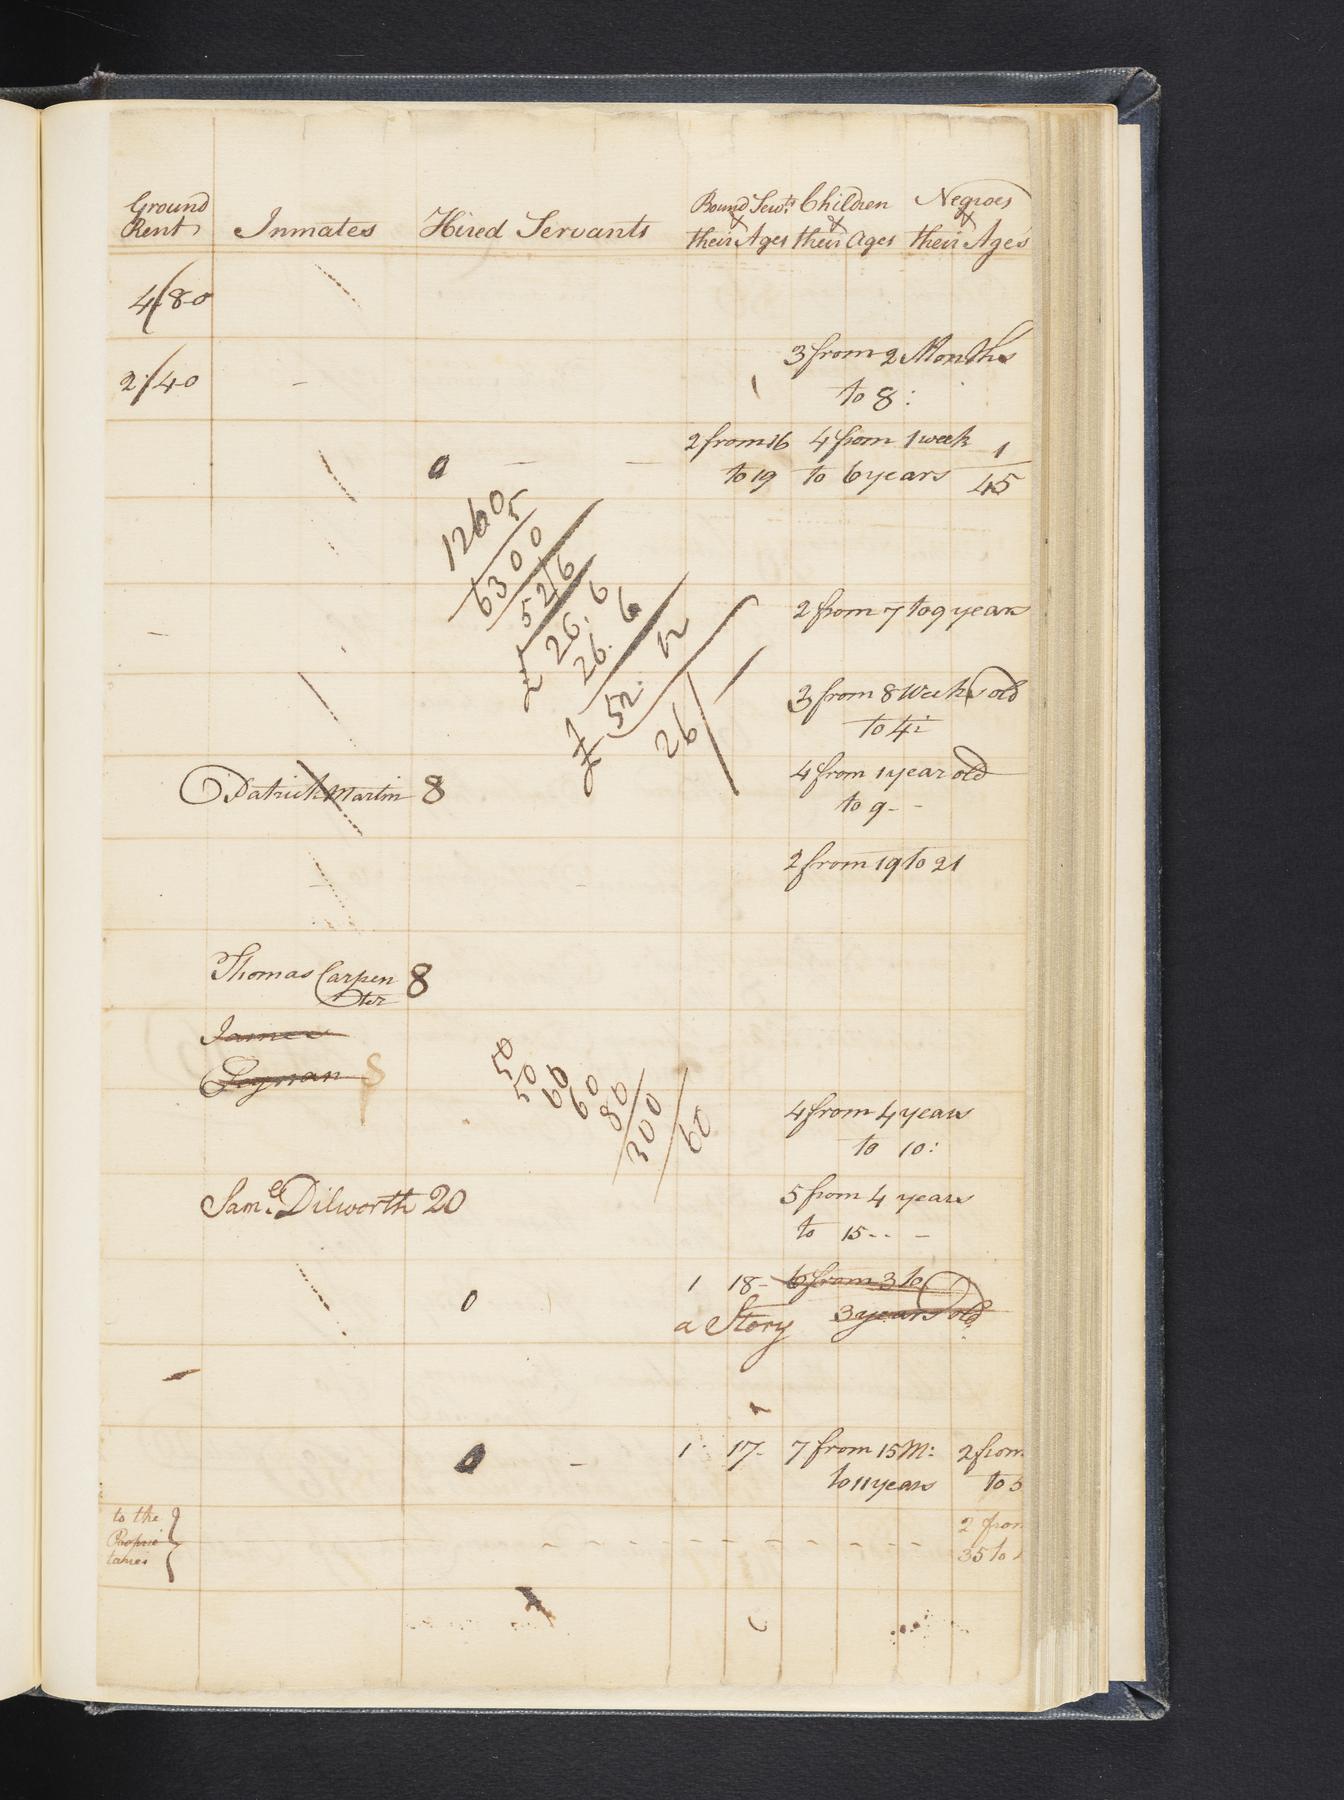 Ground Rent Inmates Hired Servants Bound Servts & their Ages Children & their Ages Negroes & their Ages
4/80
2/40 - 3 from 2 Months
to 8:
2 from 16 4 from 1 week 1
0 - - to 19 to 6 years 45
1260 5
6300
52/6
26.6
26.6
£ 52.12
26/
2 from 7 to 9 years
3 from 8 Weeks old
to 4:
Patrick Martin 8 4 from 1 year old
to 9 - -
2 from 19 to 21
Thomas Carpen 8
ter
James
50
50
60
60
80
300
60
4 from 4 years
to 10:
Saml. Dilworth 20 5 from 4 years
to 15 - - -
1 18- 6 from 3 to
0 a Story 3 years old
1 17- 7 from 15 M: 2 from
0 - to 11 years to 5
to the 2 from
Proprie 35 to
taries